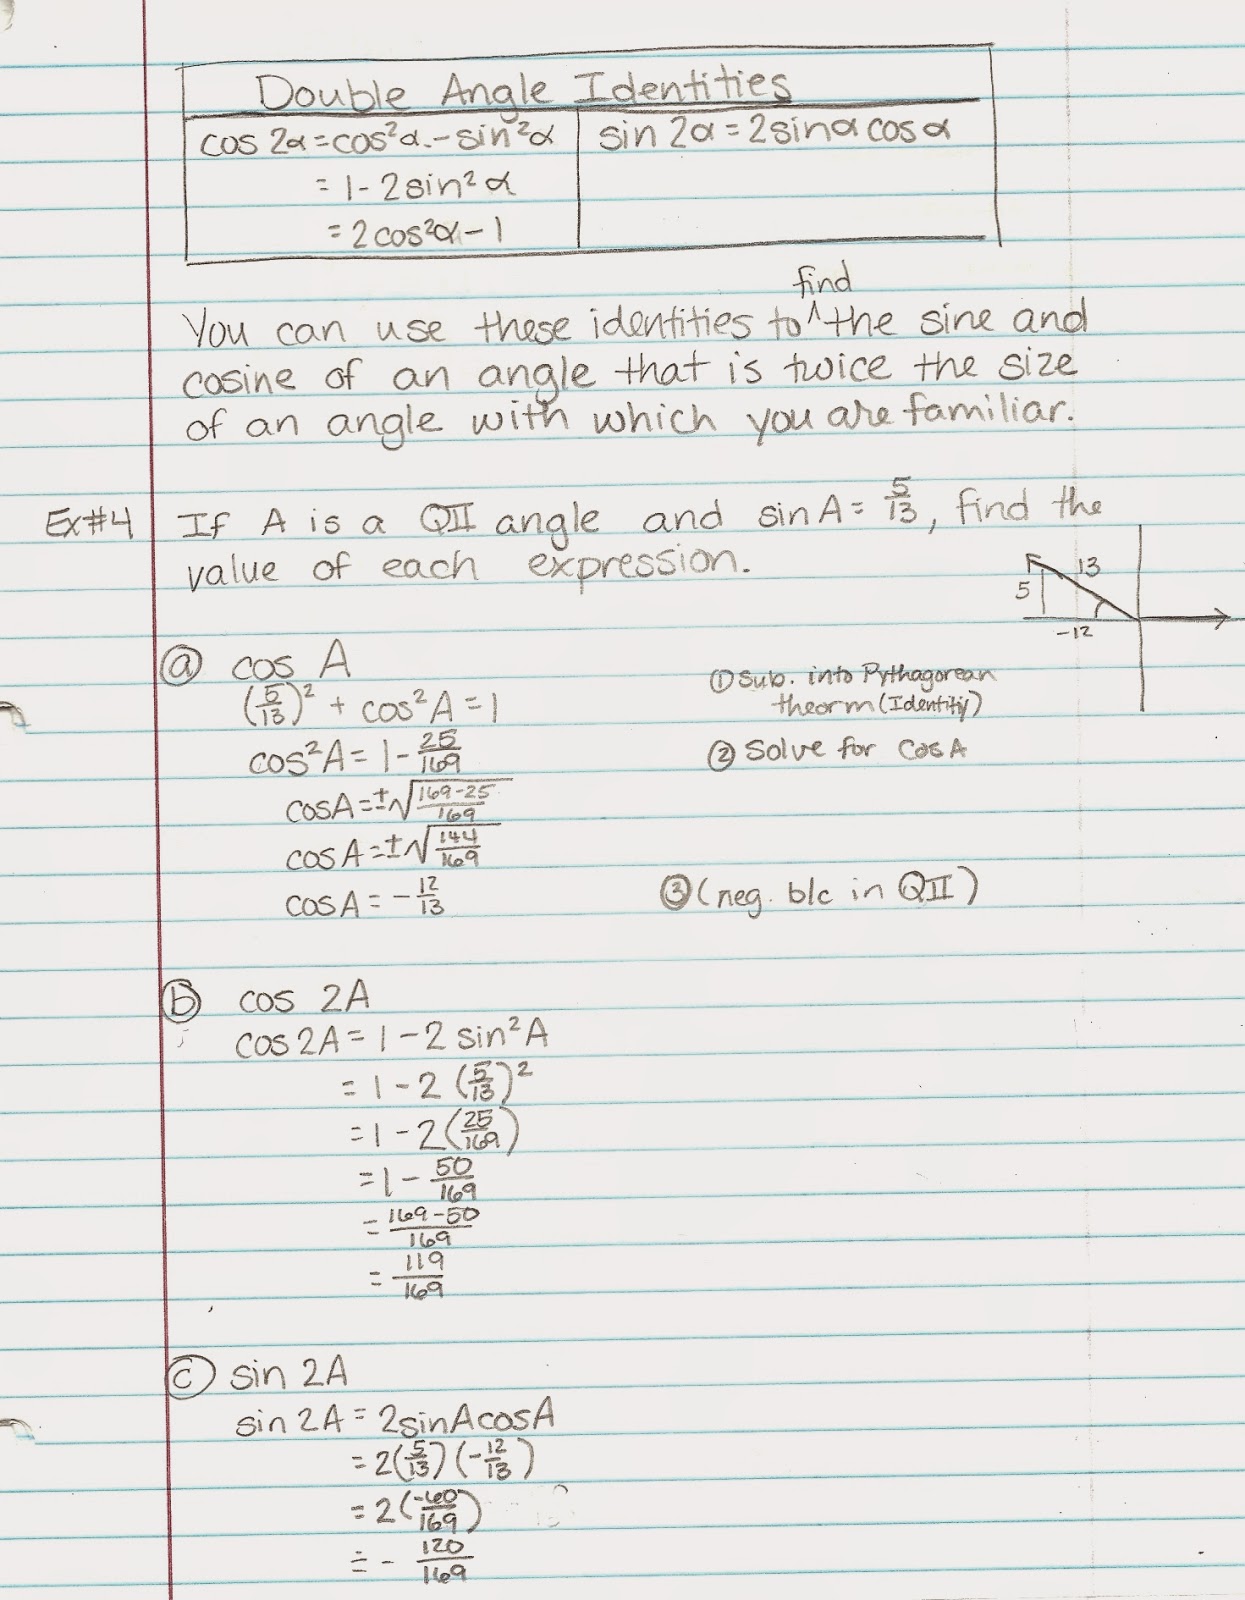 Double Angle Identities
cos 2α = cos²α - sin²α
= 1 - 2sin²α
= 2cos²α - 1
sin 2α = 2sinα cosα
find
You can use these identities to ^ the sine and
cosine of an angle that is twice the size
of an angle with which you are familiar.
Ex#4 If A is a QII angle and sin A = 5/13, find the
value of each expression.
13
5
-12
ⓐ cos A
(5/13)² + cos²A = 1
cos²A = 1 - 25/169
cosA = ±√(169-25/169)
cosA = ±√(144/169)
cosA = -12/13
① Sub. into Pythagorean
theorm (Identitiy)
② Solve for cos A
③ (neg. b/c in QII)
ⓑ cos 2A
cos 2A = 1 - 2 sin²A
= 1 - 2 (5/13)²
= 1 - 2 (25/169)
= 1 - 50/169
= 169-50/169
= 119/169
ⓒ sin 2A
sin 2A = 2sinAcosA
= 2(5/13)(-12/13)
= 2(-60/169)
= - 120/169